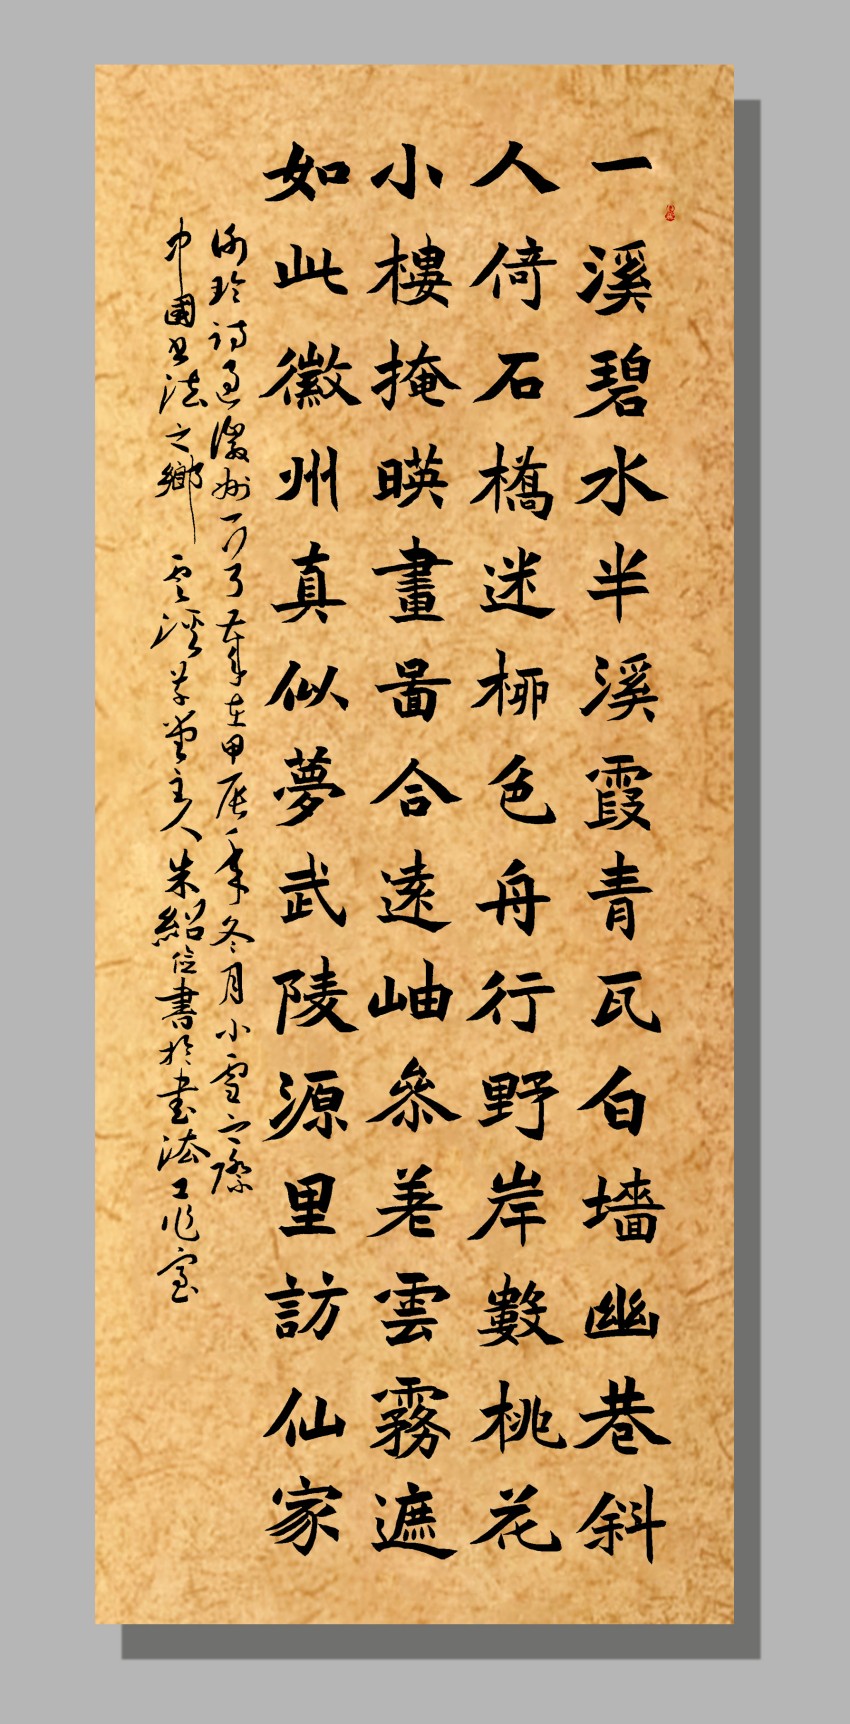 一溪碧水半溪霞青瓦白墻幽巷斜
人倚石橋迷柳色舟行野岸數桃花
小樓掩暎畫啚合遠岫叅差雲霧遮
如此徽州真似夢武陵源里訪仙家
玲詩過徽州一首歲在甲辰年冬月小雪之際
中國书法之鄉雲溪草堂主人朱紹位書於书法工作室